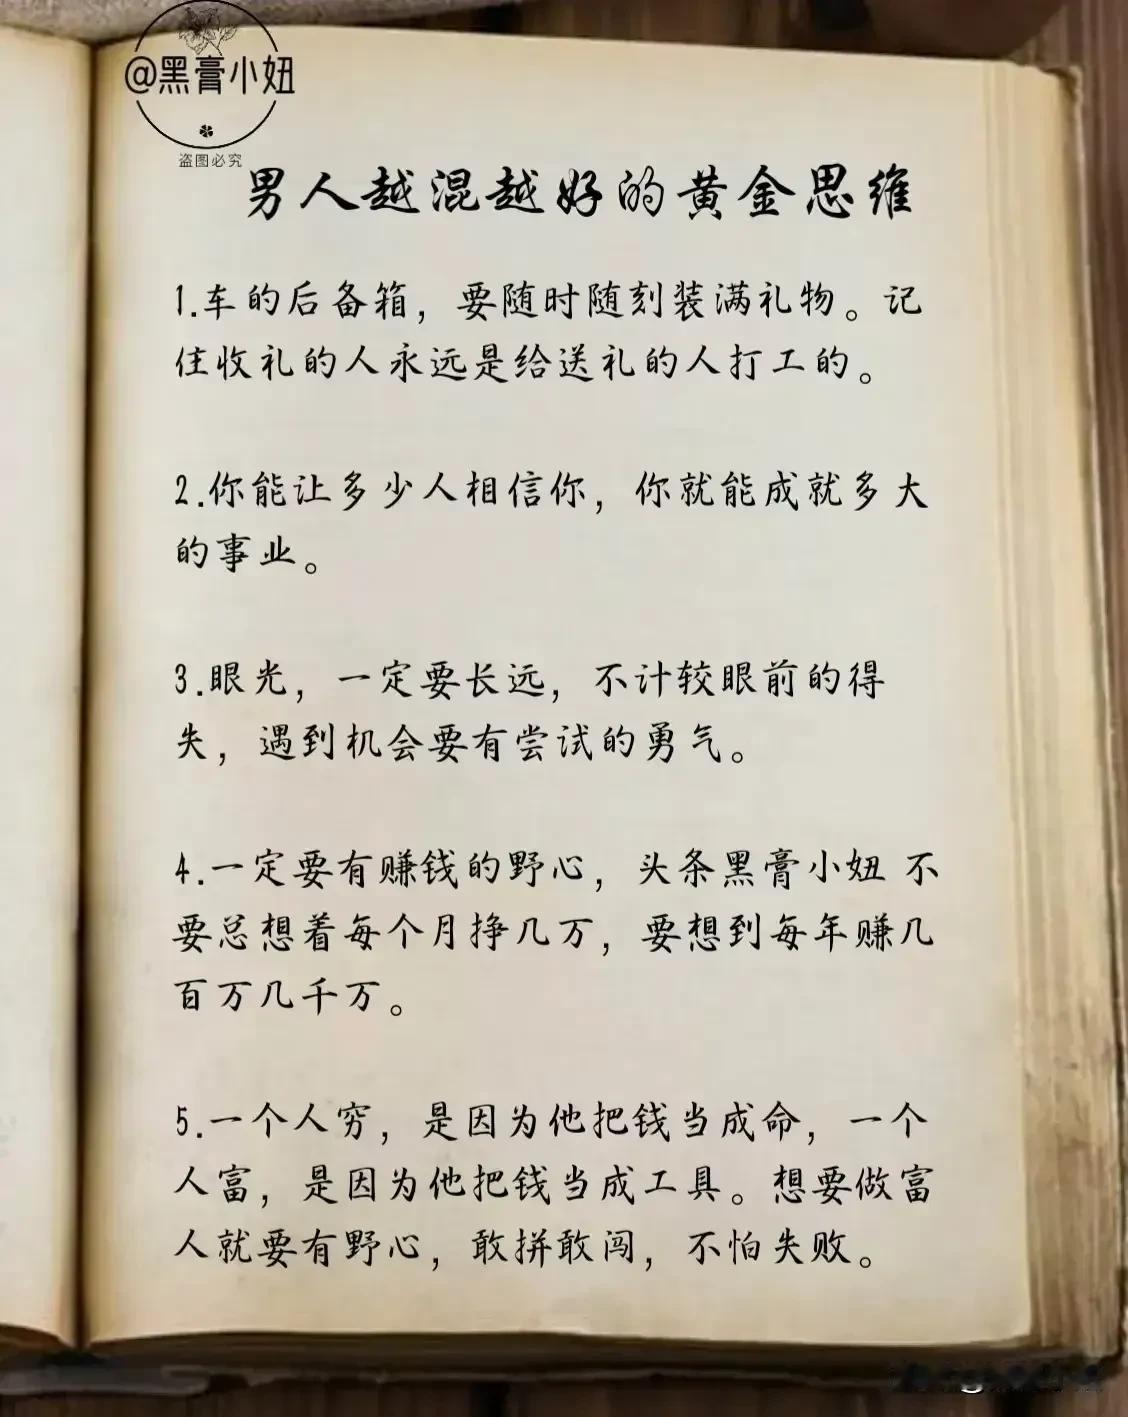 @黑膏小妞
盗图必究
男人越混越好的黄金思维
1.车的后备箱，要随时随刻装满礼物。记
住收礼的人永远是给送礼的人打工的。
2.你能让多少人相信你，你就能成就多大
的事业。
3.眼光，一定要长远，不计较眼前的得
失，遇到机会要有尝试的勇气。
4.一定要有赚钱的野心，头条黑膏小妞 不
要总想着每个月挣几万，要想到每年赚几
百万几千万。
5.一个人穷，是因为他把钱当成命，一个
人富，是因为他把钱当成工具。想要做富
人就要有野心，敢拼敢闯，不怕失败。